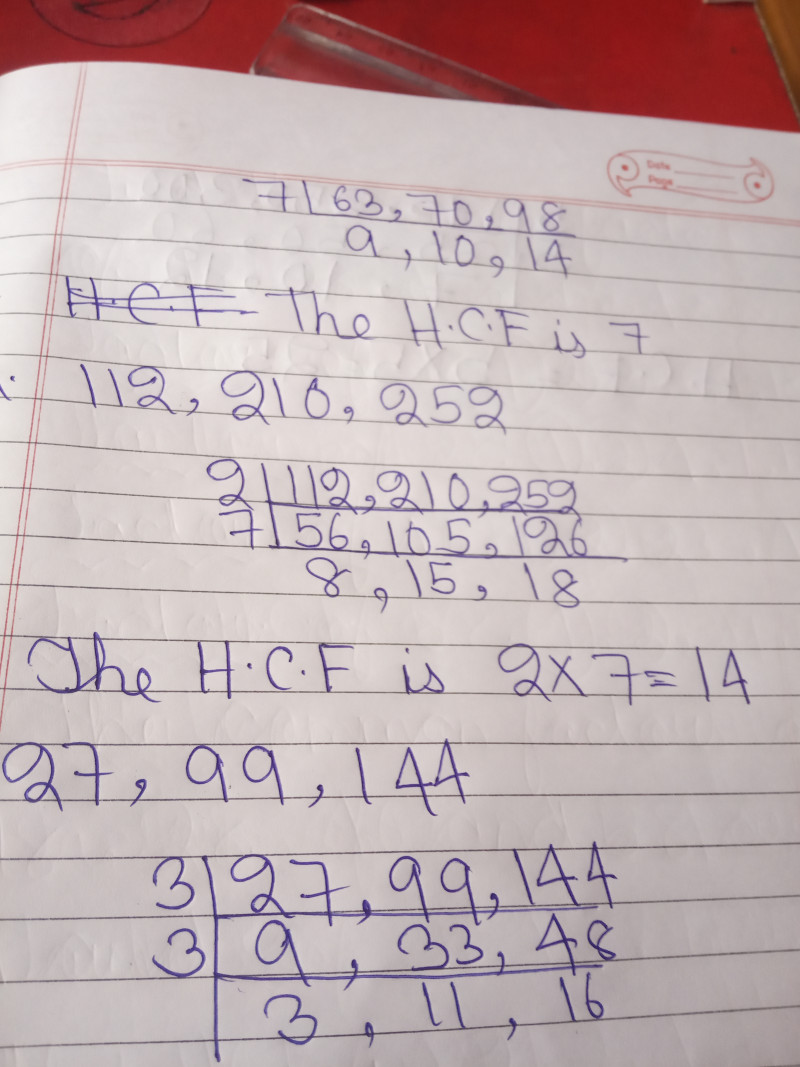 Date
Page
7 63, 70, 98
9, 10, 14
H.C.F The H.C.F is 7
112, 210, 252
2 112, 210, 252
7 56, 105, 126
8, 15, 18
The H.C.F is 2×7=14
27, 99, 144
3 27, 99, 144
3 9, 33, 48
3, 11, 16